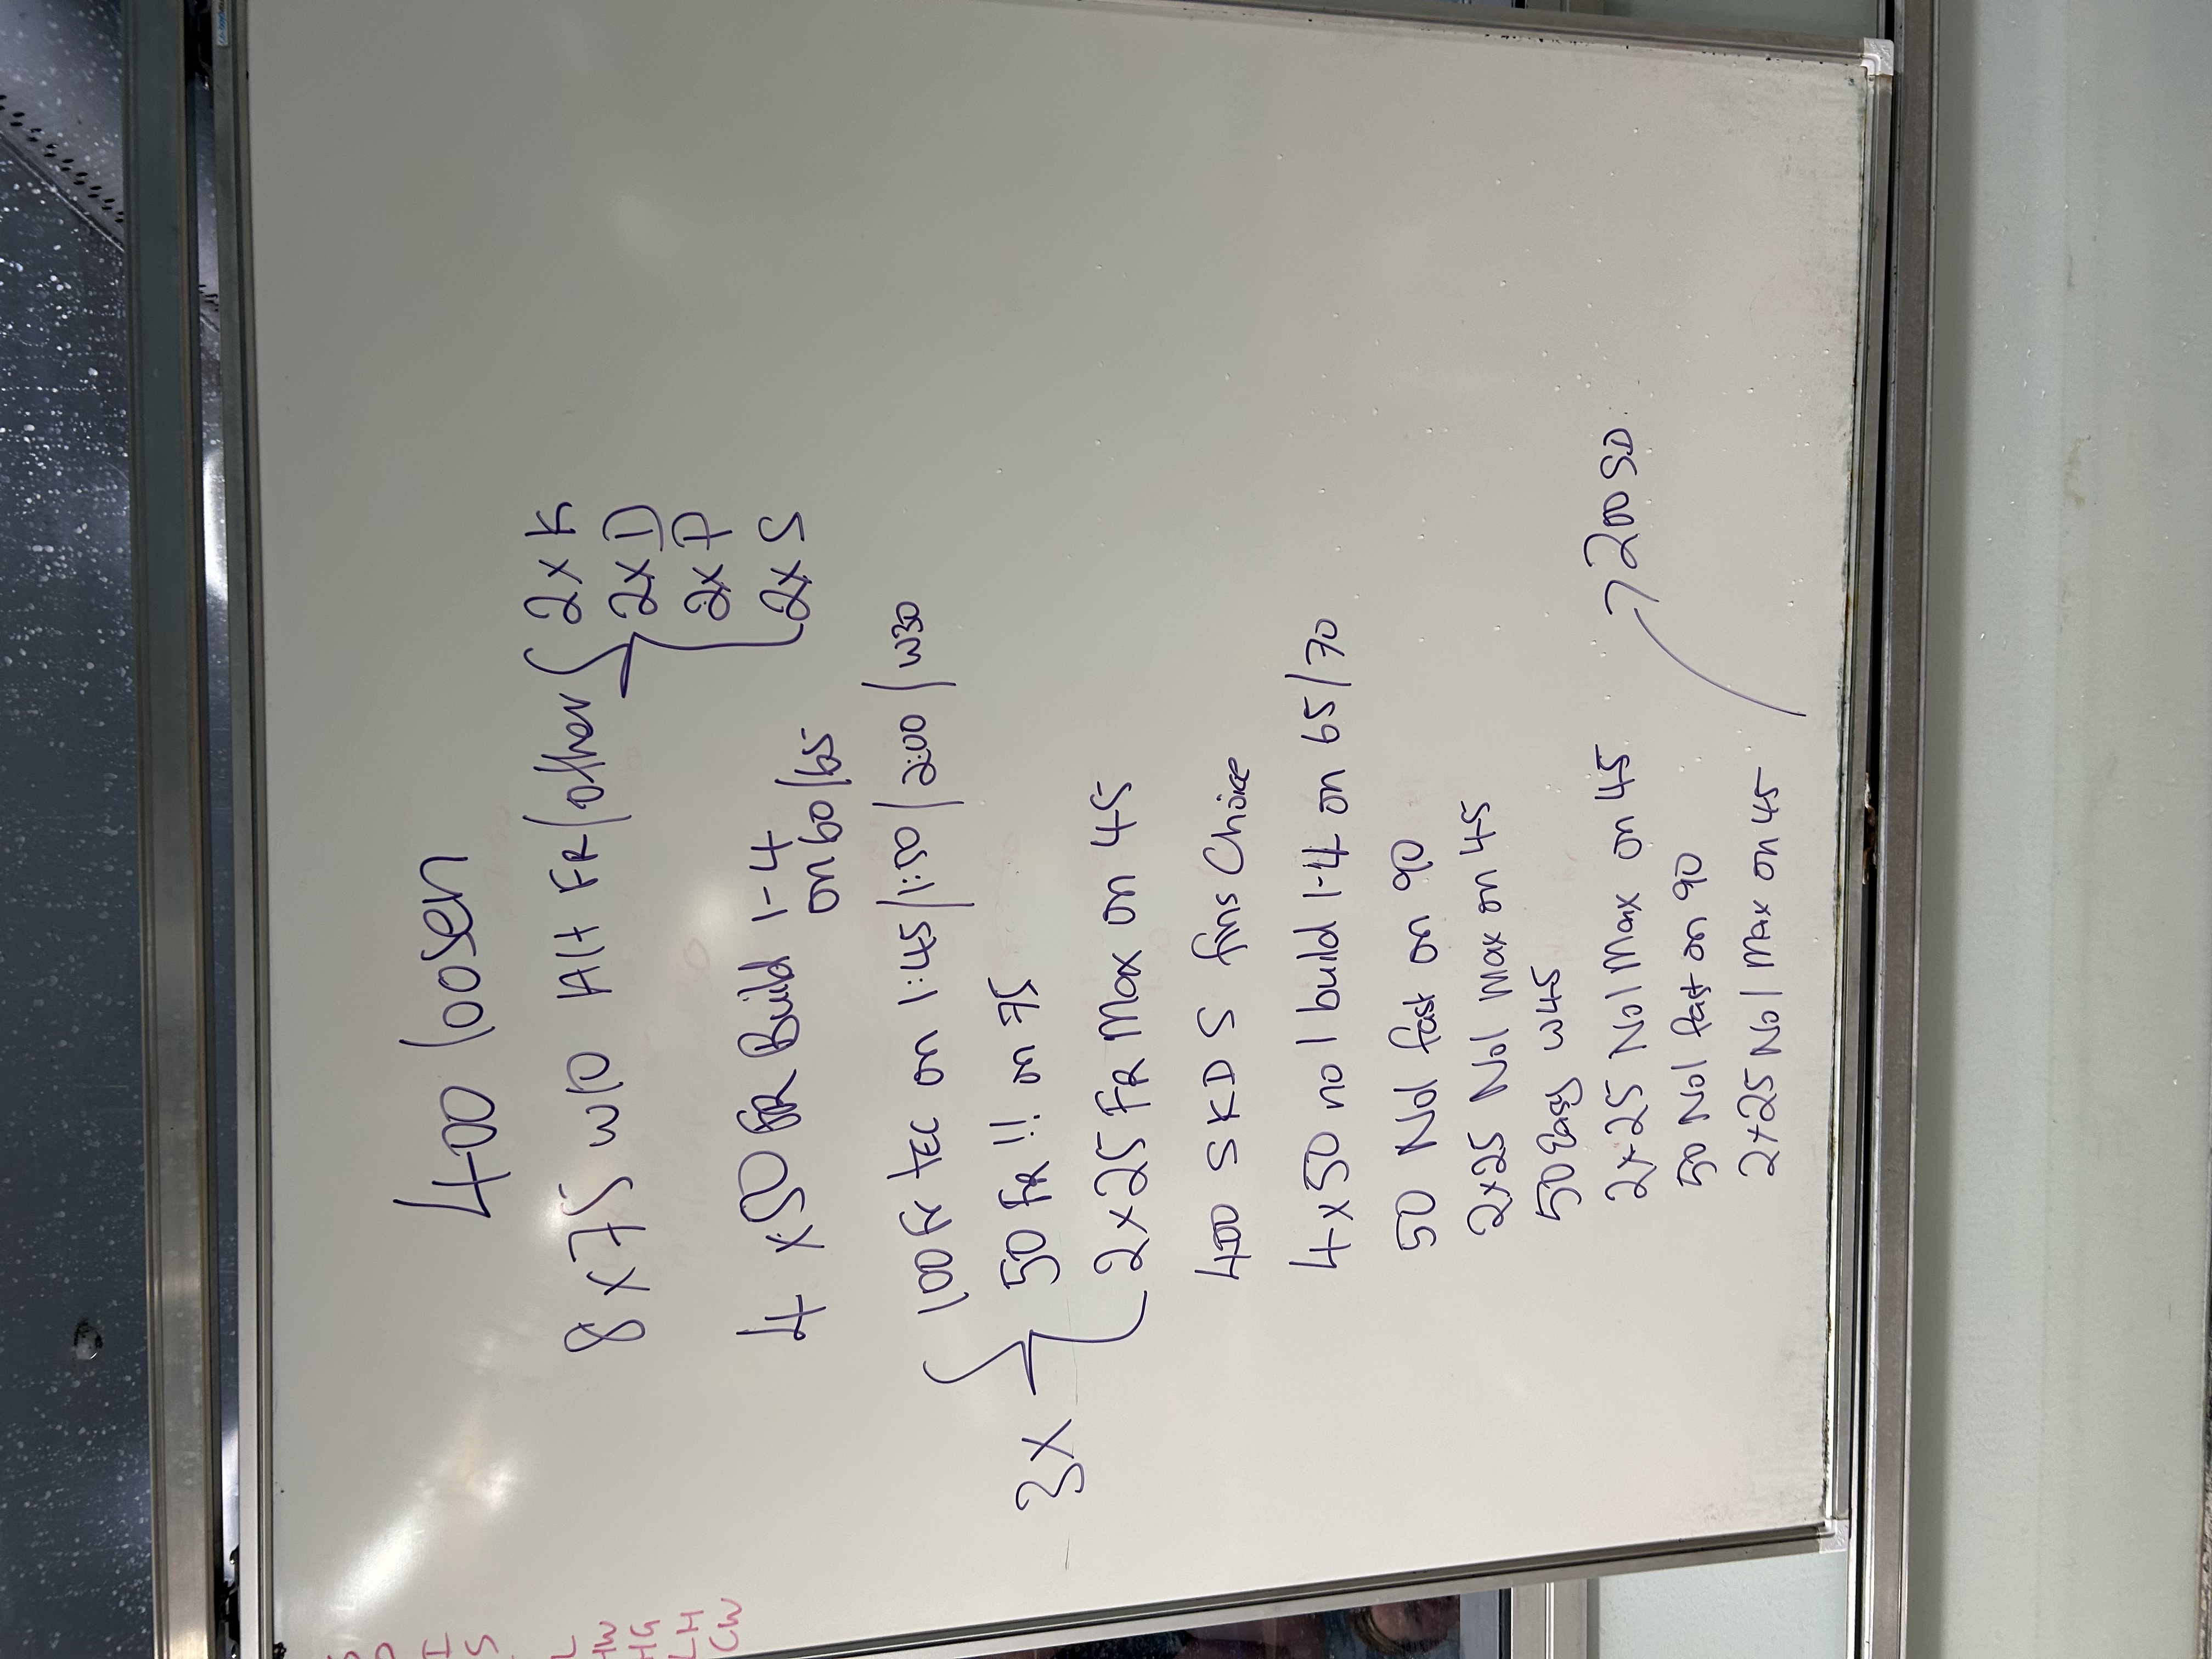 400 loosen
8 x 75 w10 Alt FR/other 2 x K
2 x D
2 x P
2 x S
4 x 50 FR Build 1-4
on 60/65
100 Fr tec on 1:45/1:50/2:00/w30
3x 50 FR !! on 75
2 x 25 FR Max on 45
400 S K D S fins Choice
4 x 50 no 1 build 1-4 on 65/70
50 No1 fast on 90
2x25 No1 Max on 45
50 Easy w45
2x25 No1 Max on 45
50 No1 fast on 90
2x25 No1 Max on 45
200 SD.
I
S
L
HW
HG
LH
CW